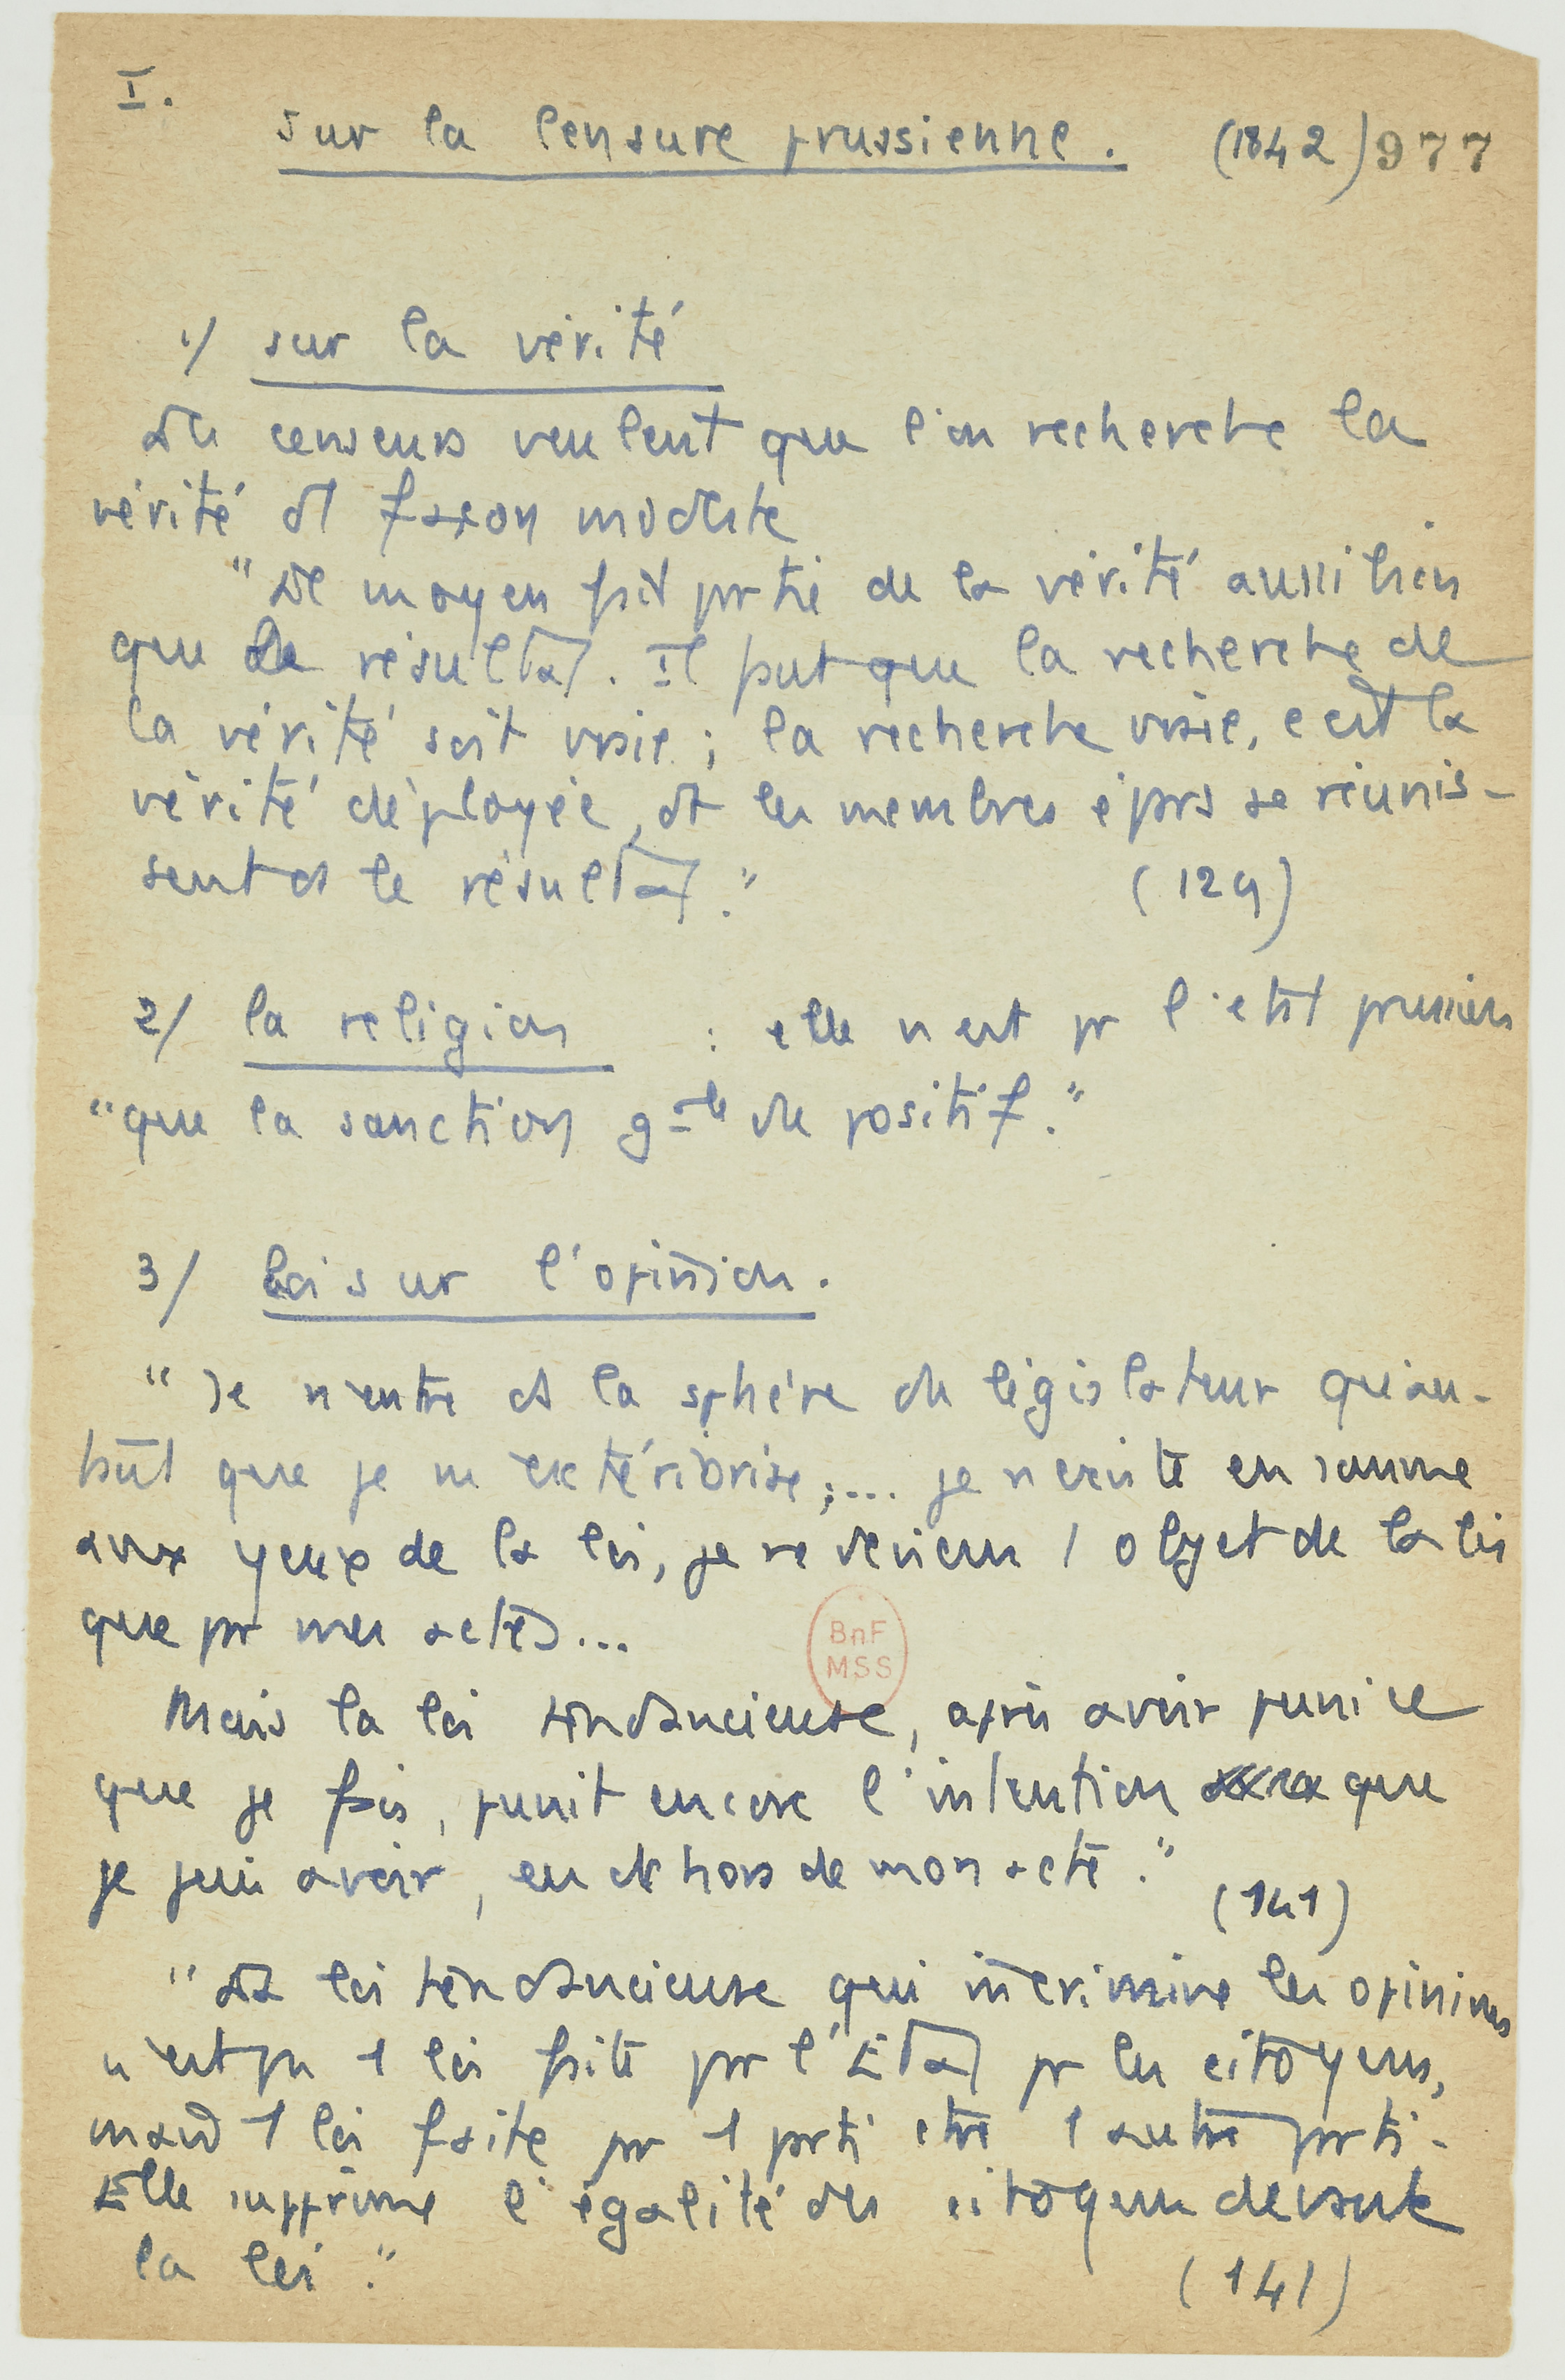 I.
sur la censure prussienne. (1842) 977
1/ sur la vérité
des censeurs veulent que l'on recherche la
vérité de façon modeste
"Le moyen fait partie de la vérité aussi bien
que le résultat. Il faut que la recherche de
la vérité soit vraie ; la recherche vraie, c'est la
vérité déployée, dt les membres épars se réunis-
sent ds le résultat." (129)
2/ la religion : elle n'est pr l'état prussien
"que la sanction gle du positif."
3/ Loi sur l'opinion.
"Je n'entre ds la sphère du législateur qu'au-
tant que je m'extériorise ;... je n'existe en somme
aux yeux de la loi, je ne deviens 1 objet de la loi
que par mes actes...
Mais la loi tendancieuse, après avoir puni ce
que je fais, punit encore l'intention que
je puis avoir, en dehors de mon acte." (141)
BnF
MSS
"La loi tendancieuse qui incrimine les opinions
n'est pas 1 loi faite par l'Etat pr les citoyens,
mais 1 loi faite par 1 parti ctre 1 autre parti.
Elle supprime l'égalité des citoyens devant
la loi." (141)